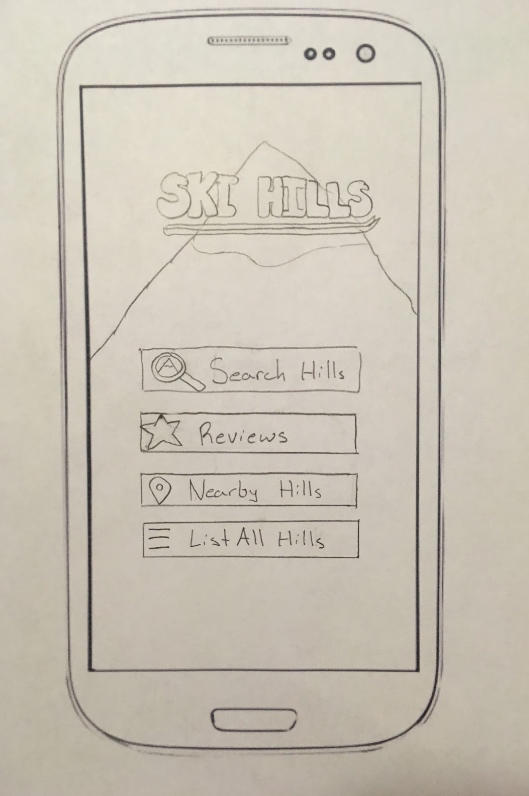 SKI HILLS
Search Hills
Reviews
Nearby Hills
List All Hills